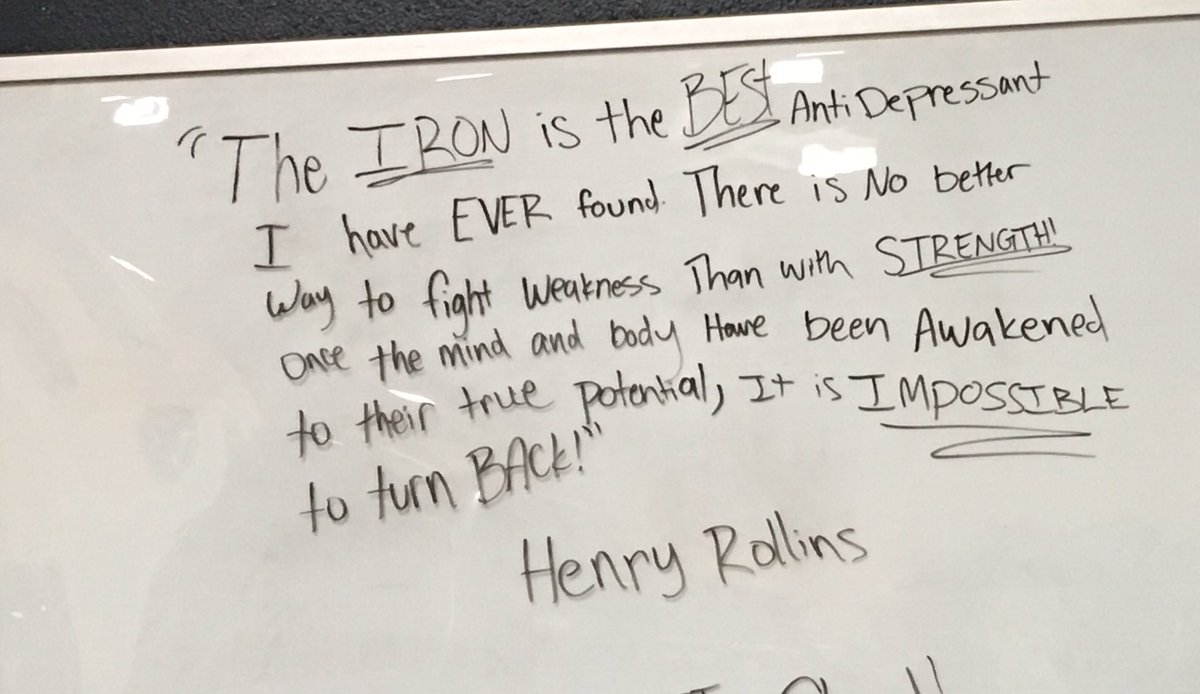 "The IRON is the BEST AntiDepressant
I have EVER found. There is No better
Way to fight weakness Than with STRENGTH!
Once the mind and body Have been Awakened
to their true potential, It is IMPOSSIBLE
to turn BACK!"
Henry Rollins